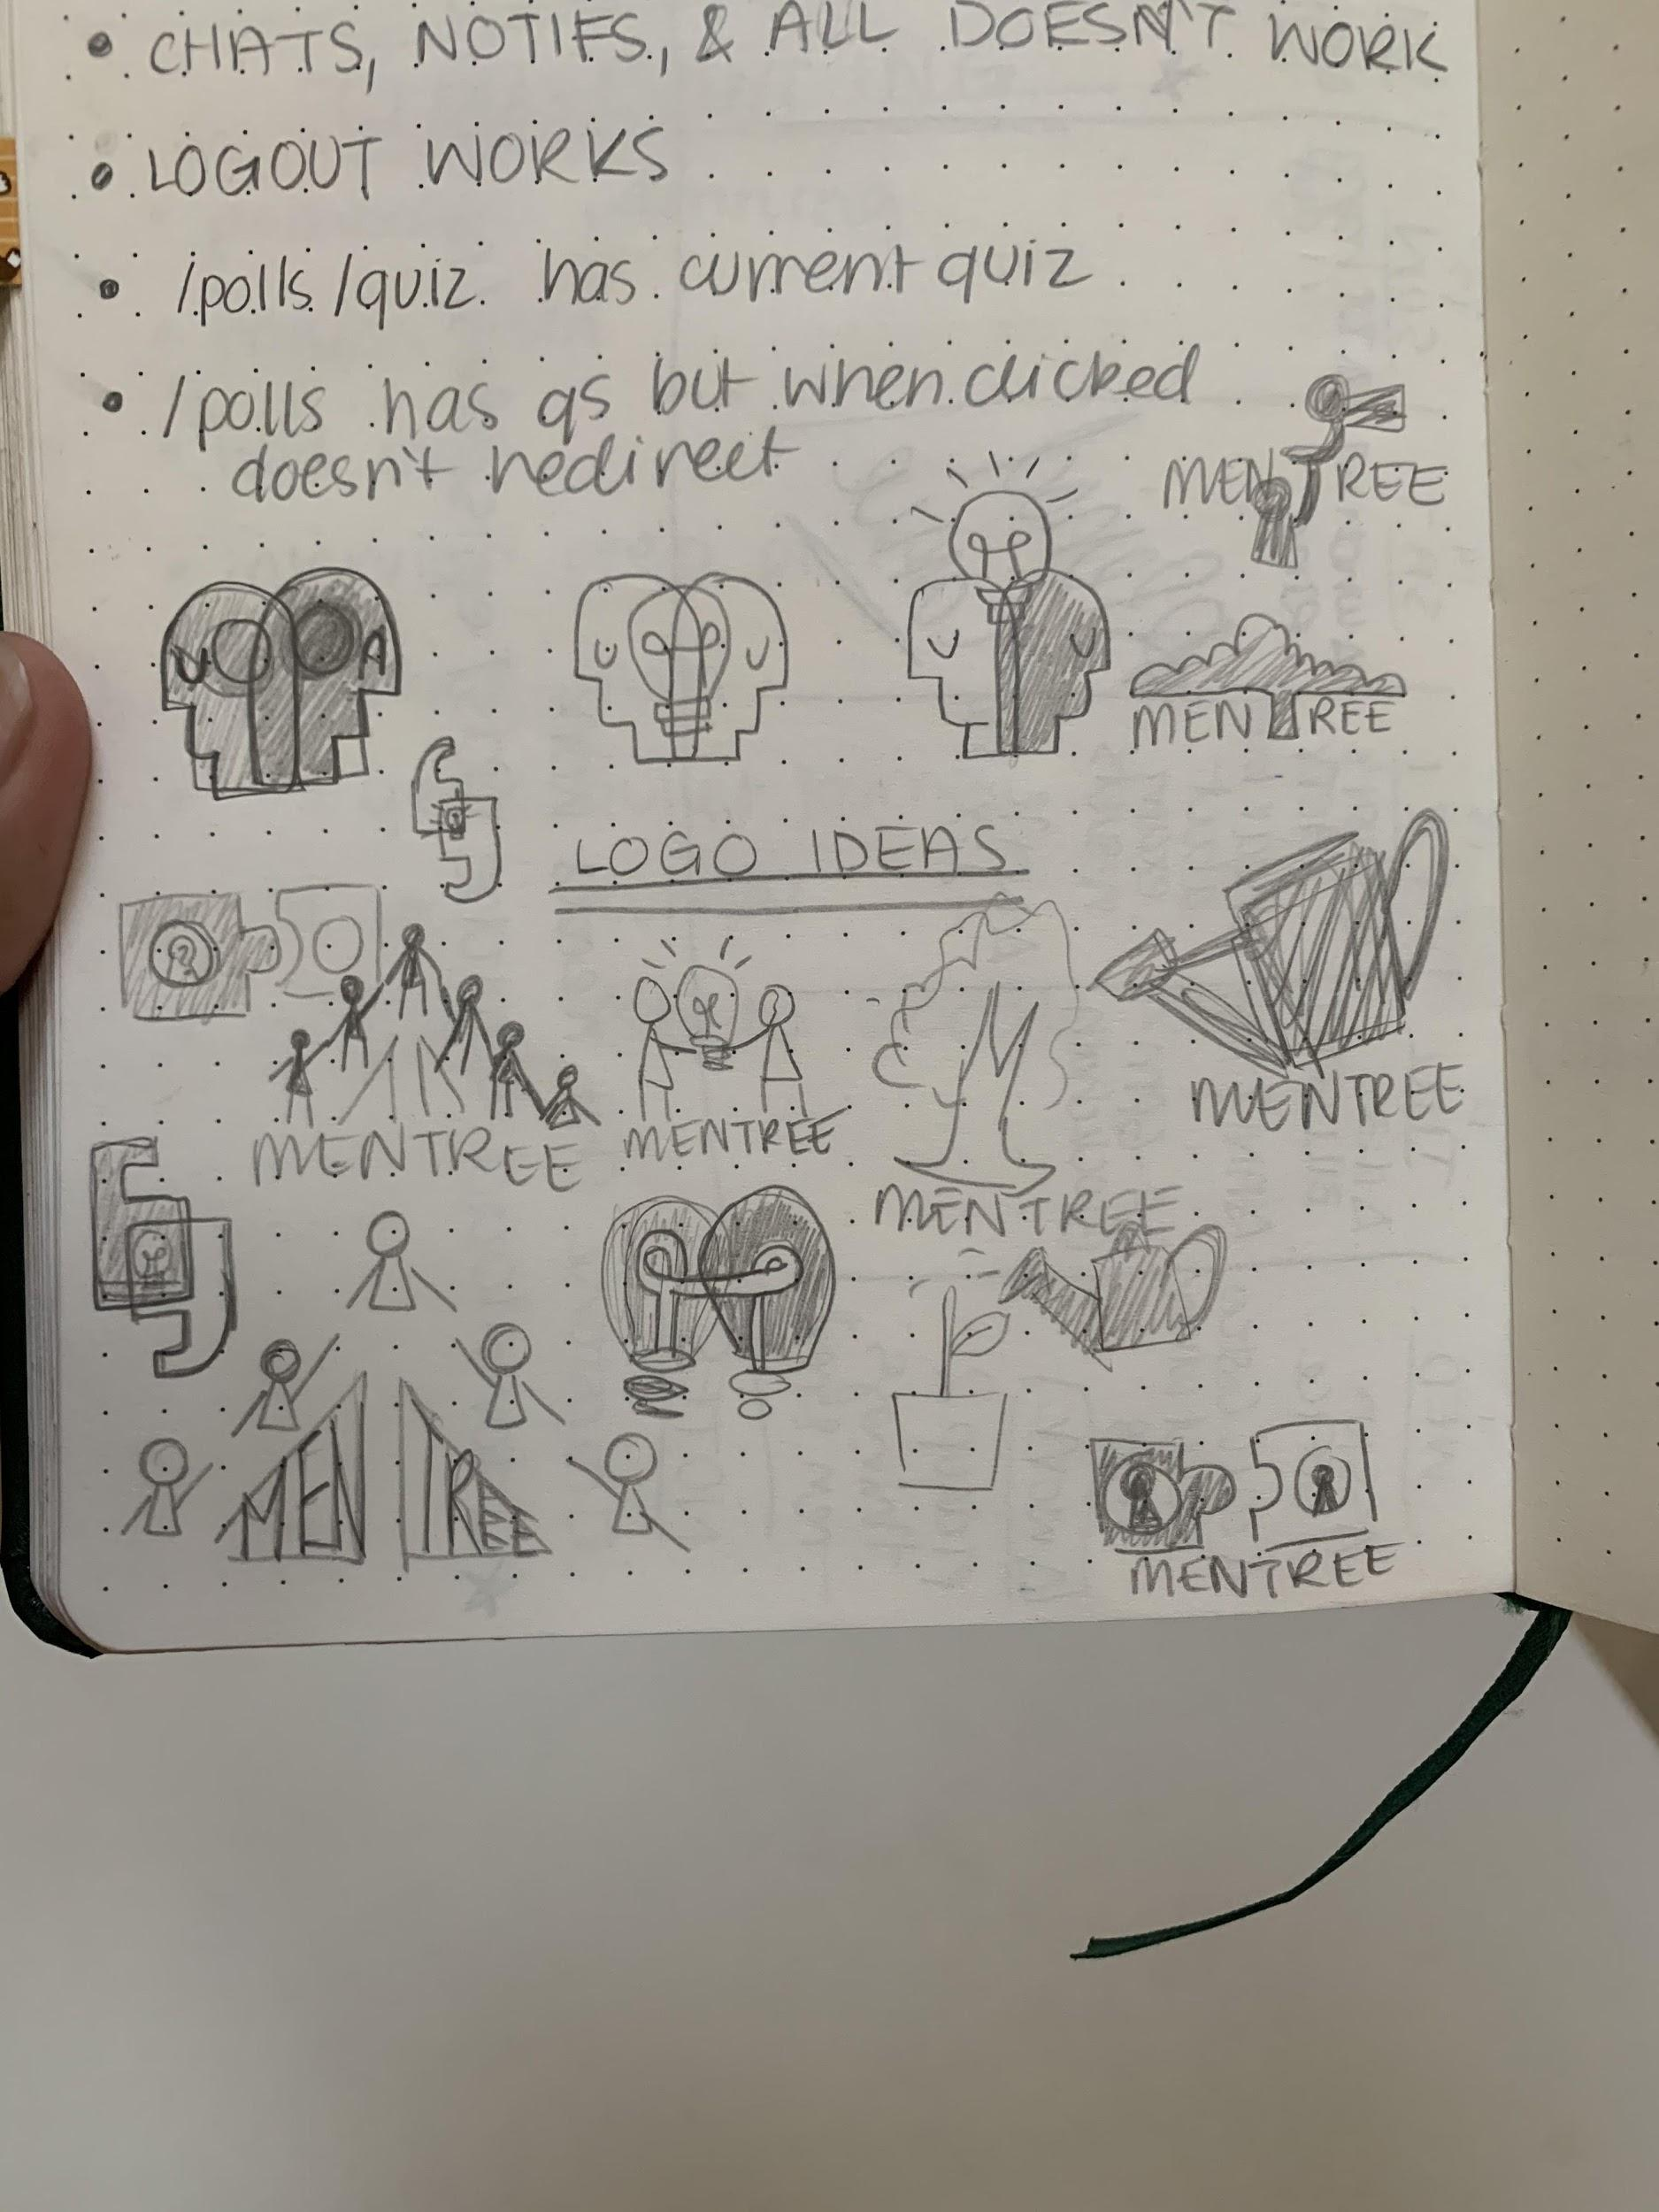 • CHATS, NOTIFS, & ALL DOESN'T WORK
• LOGOUT WORKS
• /polls/quiz has current quiz
• /polls has qs but when clicked
doesn't redirect
MENTREE
MENTREE
LOGO IDEAS
MENTREE
MENTREE
MENTREE
MENTREE
MEN TREE
MENTREE